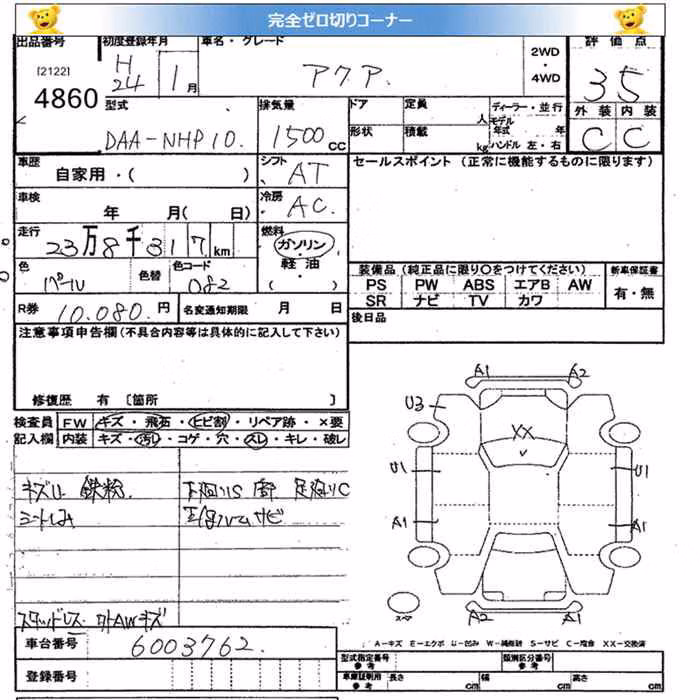 完全ゼロ切りコーナー
出品番号 初度登録年月 車名・グレード 2WD・4WD 評価点
[2122] H24 1月 アクア. 35
4860 型式 排気量 ドア 定員 人 ディーラー・並行 外装 内装
DAA-NHP10. 1500cc 形状 積載 kg モデル年式 年 ハンドル 左・右 C C
車歴 自家用・( ) シフト AT セールスポイント (正常に機能するものに限ります)
車検 年 月( 日) 冷房 AC
走行 23万8千317km 燃料 ガソリン・軽油・( )
色 パール 色替 色コード 082 装備品 (純正品に限り〇をつけてください) 新車保証書
PS PW ABS エアB AW 有・無
SR ナビ TV カワ
R券 10.080.円 名変通知期限 月 日 後日品
注意事項申告欄(不具合内容等は具体的に記入して下さい)
A1 A2
修復歴 有 〔箇所 〕 U3
検査員 FW キズ・飛石・ヒビ割・リペア跡・×要
記入欄 内装 キズ・汚れ・コゲ・穴・スレ・キレ・破レ XX
U1 U1
キズU 鉄粉. 下回りS
シートしみ サビ A1 A1
スタッドレス 外AWキズ スペア A2 A1
車台番号 6003762.
A-キズ E-エクボ U-凹み W-補修跡 S-サビ C-腐食 XX-交換済
登録番号 型式指定番号 参考 類別区分番号 参考
車庫証明用 参考 長さ cm 幅 cm 高さ cm